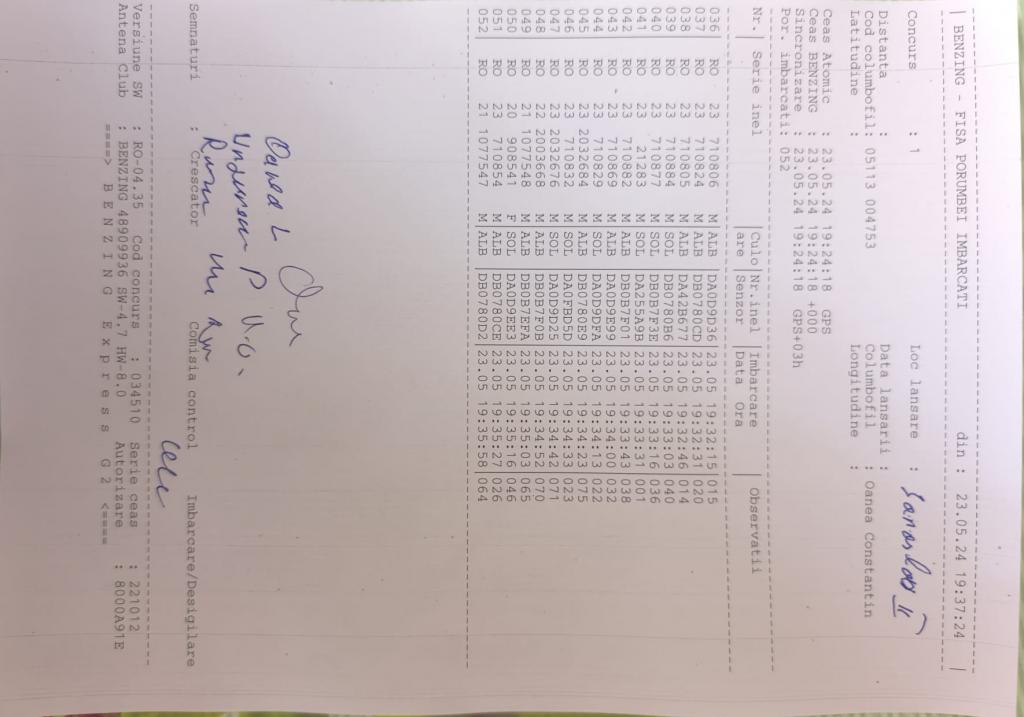 | BENZING - FISA PORUMBEI IMBARCATI din : 23.05.24 19:37:24 |
Concurs : 1 Loc lansare :
Distanta : Data lansarii :
Cod columbofil: 05113 004753 Columbofil : Oanea Constantin
Latitudine : Longitudine :
Ceas Atomic : 23.05.24 19:24:18 GPS
Ceas BENZING : 23.05.24 19:24:18 +000
Sincronizare : 23.05.24 19:24:18 GPS+03h
Por. imbarcati: 052
Nr.| Serie inel |Culo|Nr.inel | Imbarcare | Observatii
|are |Senzor | Data Ora |
036| RO 23 710806 M|ALB |DA0D9D36|23.05 19:32:15|015
037| RO 23 710824 M|ALB |DB0780CD|23.05 19:32:31|020
038| RO 23 710805 M|ALB |DA42B677|23.05 19:32:46|014
039| RO 23 710884 M|SOL |DB0780B6|23.05 19:33:03|040
040| RO 23 710877 M|SOL |DB0B7F3E|23.05 19:33:16|036
041| RO 23 21283 M|SOL |DA255A9B|23.05 19:33:31|001
042| RO 23 710882 M|ALB |DB0B7F01|23.05 19:33:43|038
043| RO 23 710869 M|ALB |DA0D9E99|23.05 19:34:00|032
044| RO 23 710829 M|SOL |DA0D9DFA|23.05 19:34:13|022
045| RO 23 2032684 M|ALB |DB0780E9|23.05 19:34:23|075
046| RO 23 710832 M|SOL |DA0FBD5D|23.05 19:34:33|023
047| RO 23 2032676 M|SOL |DA0D9D25|23.05 19:34:42|071
048| RO 22 2003668 M|ALB |DB0B7F0B|23.05 19:34:52|070
049| RO 21 1077548 M|ALB |DB0B7EFA|23.05 19:35:03|065
050| RO 20 908541 F|SOL |DA0D9EE3|23.05 19:35:16|046
051| RO 23 710854 M|ALB |DB0780CE|23.05 19:35:27|026
052| RO 21 1077547 M|ALB |DB0780D2|23.05 19:35:58|064
Oanea L
Semnaturi : Crescator Comisia control Imbarcare/Desigilare
Versiune SW : RO-04.35 Cod concurs : 034510 Serie ceas : 221012
Antena Club : BENZING 48909936 SW-4.7 HW-8.0 Autorizare : 8000A91E
====> B E N Z I N G E x p r e s s G 2 <====